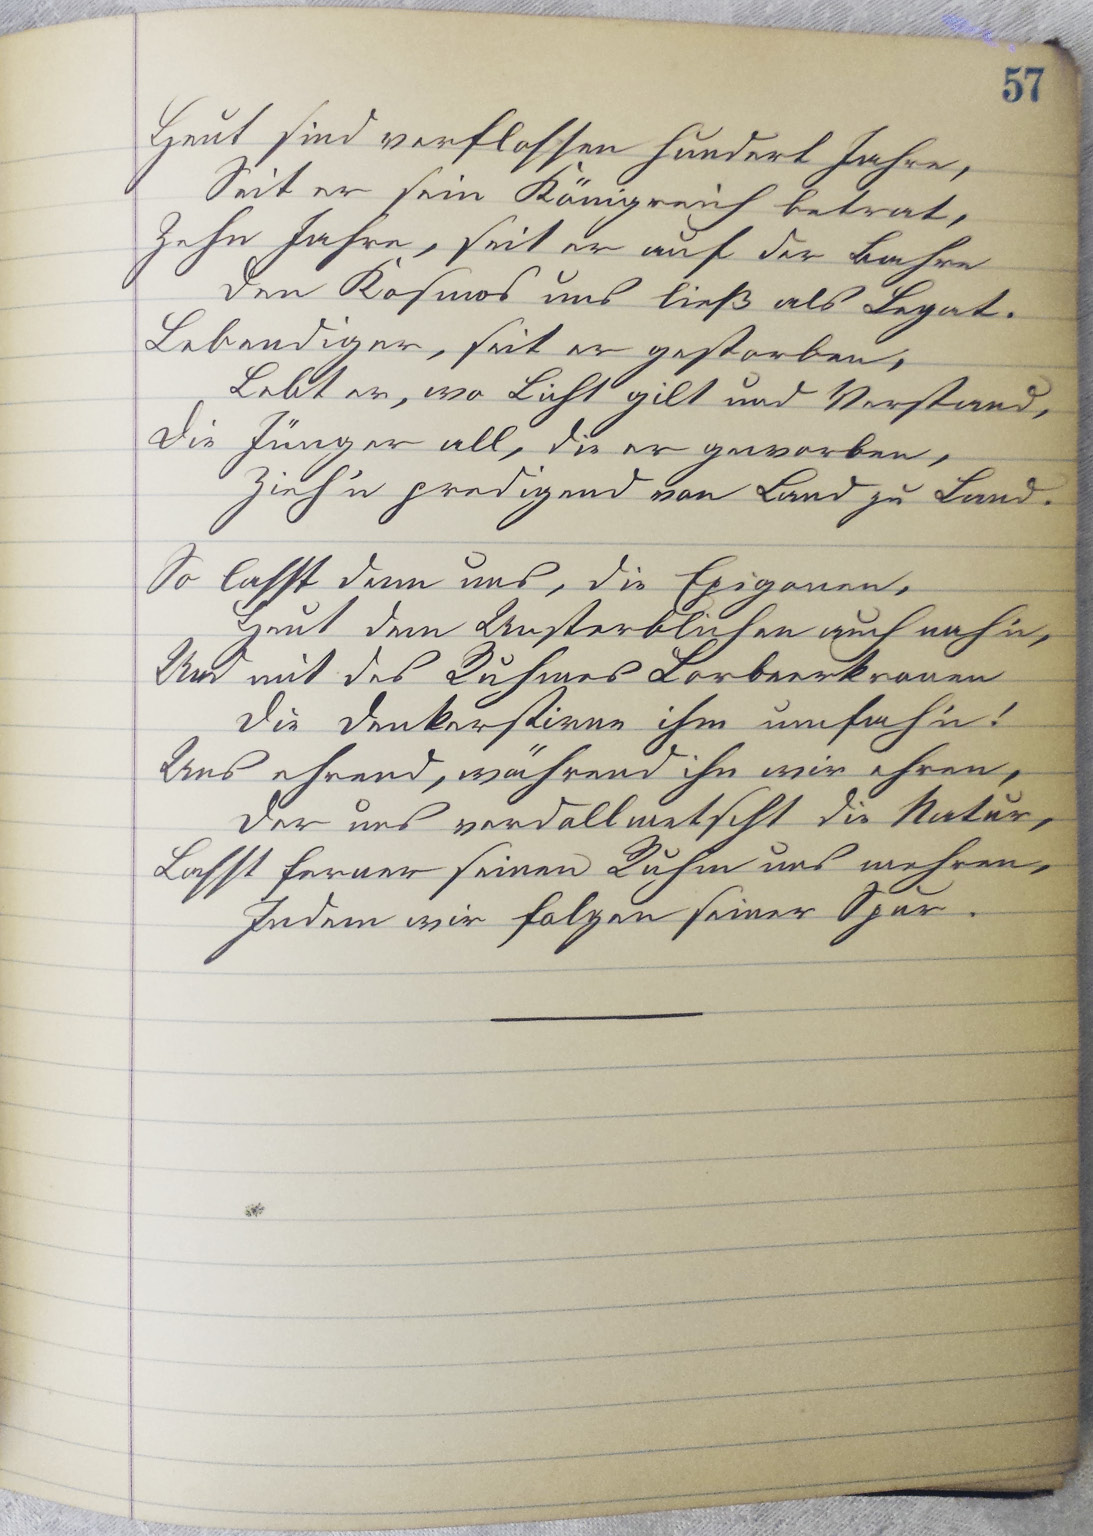 57
Heut sind verflossen hundert Jahre,
Seit er sein Königreich betrat,
Zehn Jahre, seit er auf der Bahre
Den Kosmos uns ließ als Legat.
Lebendiger, seit er gestorben,
Lebt er, wo Licht gilt und Verstand,
Die Jünger all, die er geworben,
Zieh'n predigend von Land zu Land.
So lasst denn uns, die Epigonen,
Heut dem Unsterblichen auch nah'n,
Und mit des Ruhmes Lorbeerkronen
Die Denkerstirne ihm umfah'n!
Uns ehrend, während ihn wir ehren,
Der uns verdollmetscht die Natur,
Lasst ferner seinen Ruhm uns mehren,
Indem wir folgen seiner Spur.